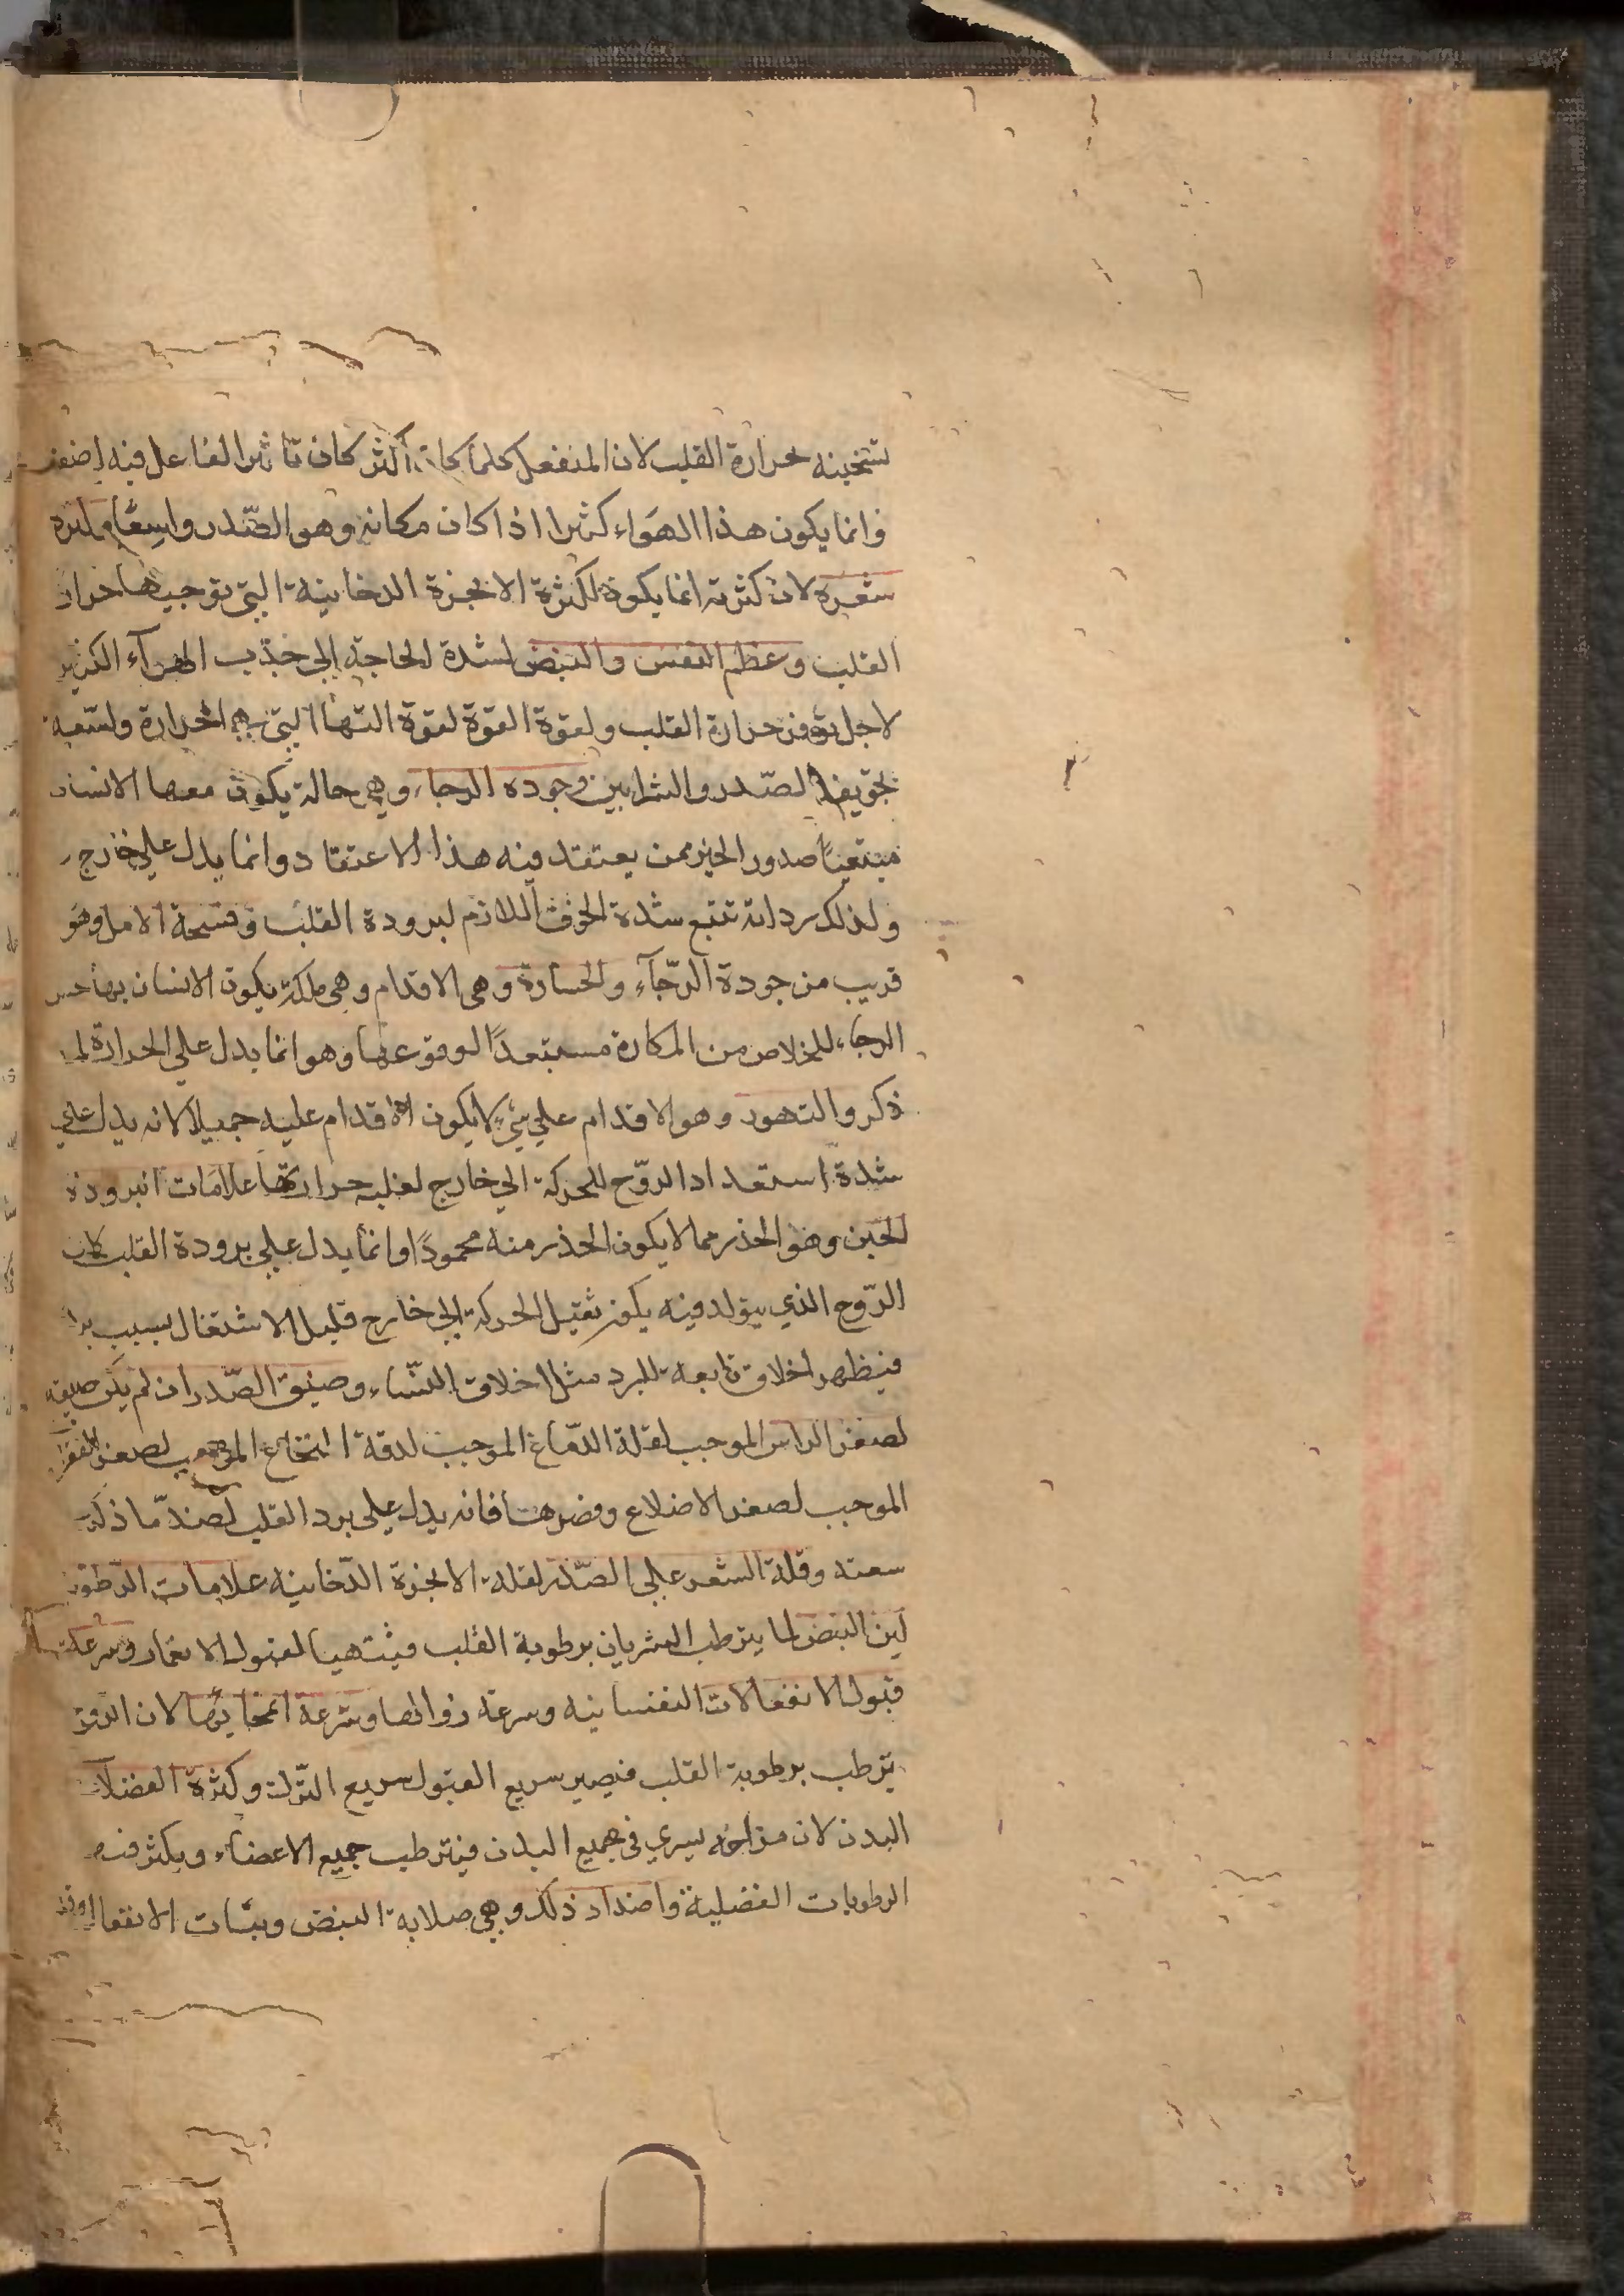 تسخينه لحرارة القلب لان المنفعل كلما كان اكثر كان تاثير الفاعل فيه اضعف
وانما يكون هذا الهواء كثيرا اذا كان مكانه وهو الصّدر واسعًا ولكثرة
شعره لان كثرته انما يكون لكثرة الابخرة الدخانية التي توجبها حرارة
القلب وعظم النفس والنبض لشدة الحاجة الي جذب الهوآء الكثير
لاجل توفر حرارة القلب ولقوة القوة لقوة التها التي هي الحرارة ولسّعة
تجويف الصّدر والشرايين وجودة الرجاء وهي حالة يكون معها الانسان
صدور الخير ممن يعتقد فيه هذا الاعتقاد وانما يدل علي
ولذلك رداته تتبع شدة الخوف اللازم لبرودة القلب وفسحة الامل وهو
قريب من جودة الرّجآء والجسارة وهي الاقدام وهي ملكة يكون الانسان بها حسن
الرجاء للخلاص من المكاره مستبعدًا لوقوعها وهو انما يدل علي الحرارة لما
ذكر والتهور وهو الاقدام علي شيء لا يكون الاقدام عليه جميلا لانه يدل علي
شدة استعداد الروّح للحركة الي خارج لغلبه حرارتها علامات البرودة
الجبن وهو الحذر مما لا يكون الحذر منه محمودًا وانما يدل علي برودة القلب لان
الرّوح الذي يتولد فيه يكون ثقيل الحركة الي خارج قليل الاشتعال بسبب
فيظهر اخلاق تابعة للبرد مثل اخلاق النسّاء وضيق الصّدر ان لم يكن ضيقه
لصغر الراس الموجب لقلة الدّماغ الموجب لدقة النخاع الموجب لصغر الفقرات
الموجب لصغر الاضلاع وقصرها فانه يدل علي برد القلب لضد ما ذكر
سعته وقلة الشعر علي الصّدر لقلة الابخرة الدّخانيه علامات الرّطوبة
لين النبض لما يترطب الشريان برطوبة القلب فيتهيا لقبول الانغمار وسرعة
قبول الانفعالات النفسانيه وسرعة زوالها وسرعة انمحايها لان الروح
يترطب برطوبة القلب فيصير سريع القبول سريع التّرك وكثرة الفضلات
البدن لان مزاجه يسري في جميع البدن فيترطب جميع الاعضاء ويكثر فيه
الرطوبات الفضلية واضداد ذلك وهي صلابة النبض وثبات الانفعالات